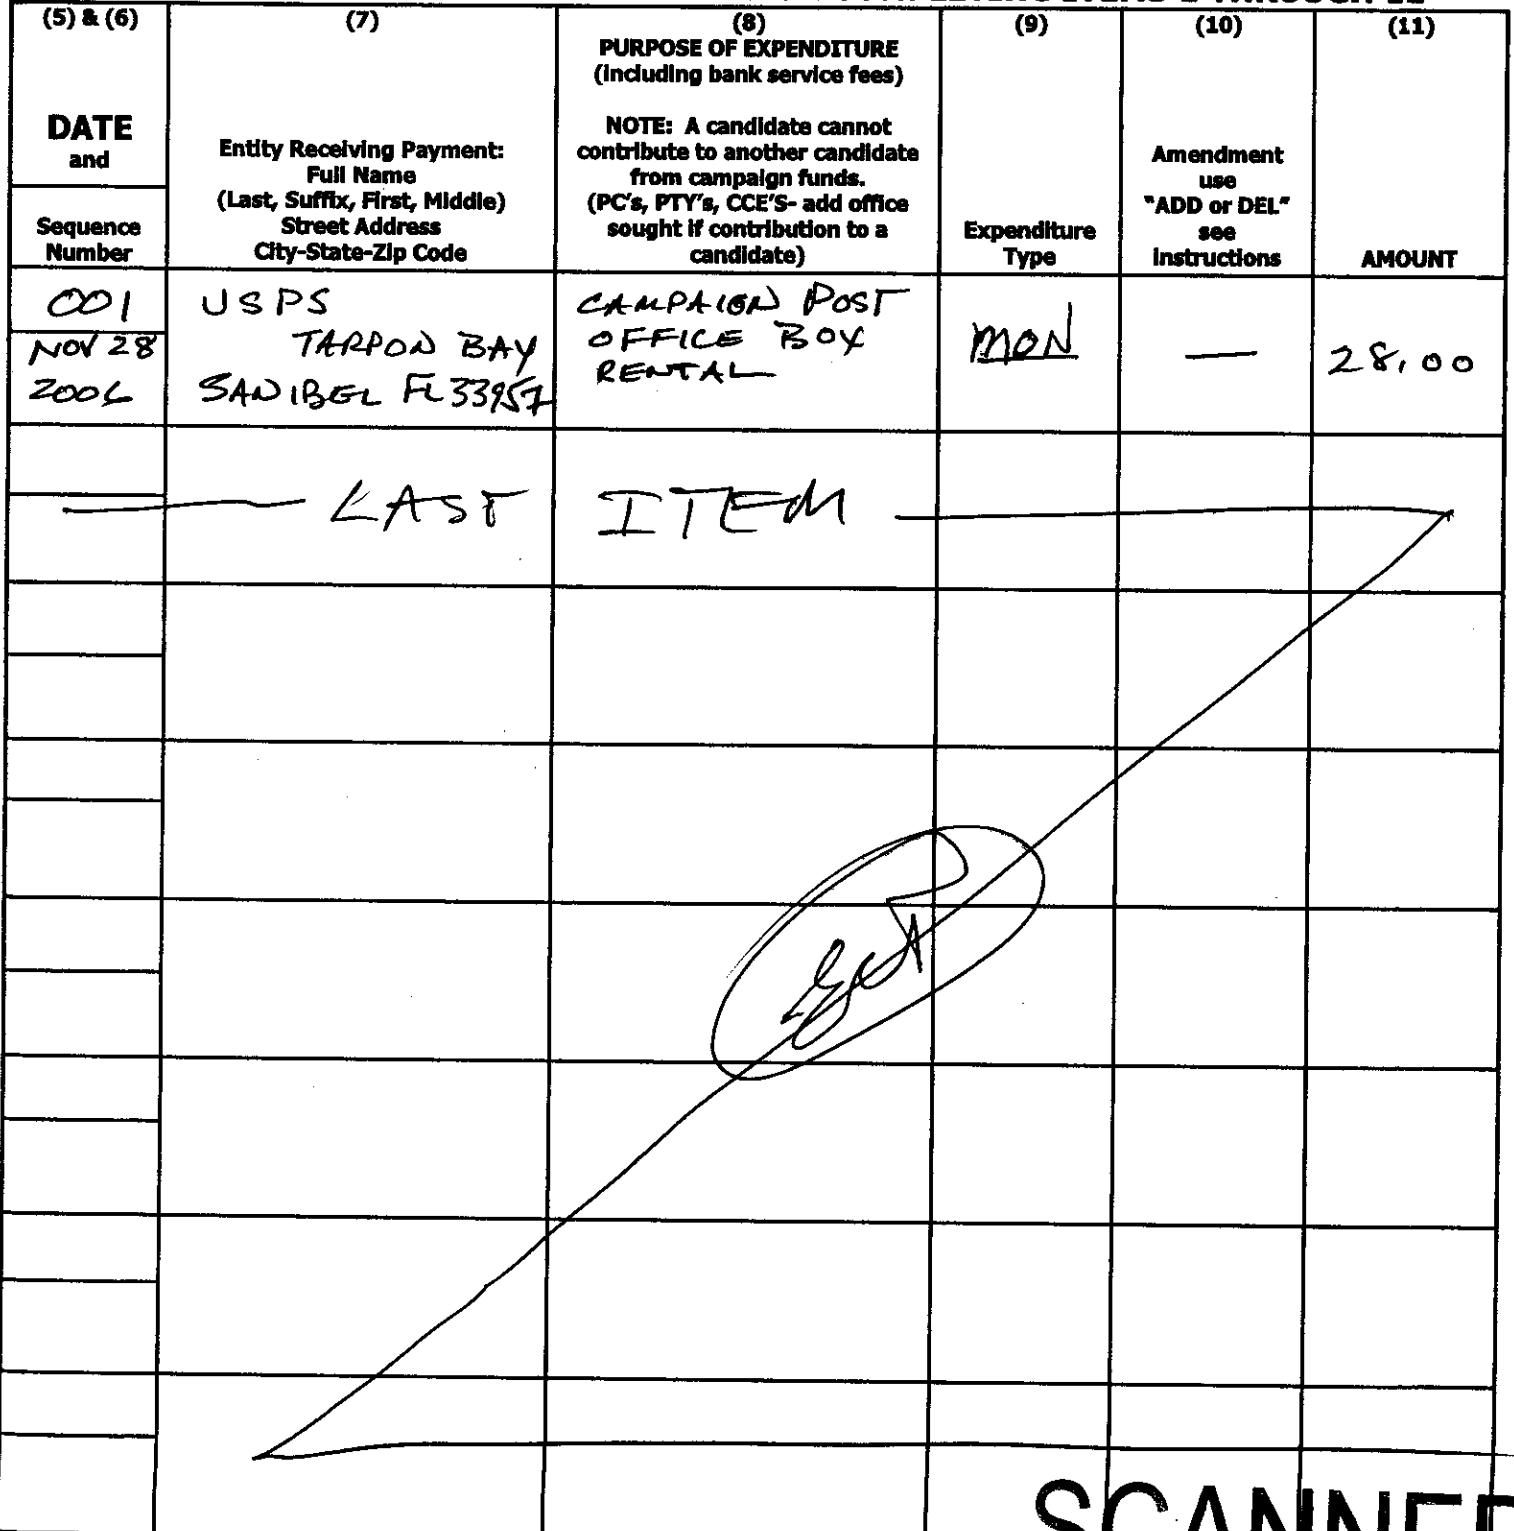 (5) & (6)
DATE
and
Sequence
Number
(7)
Entity Receiving Payment:
Full Name
(Last, Suffix, First, Middle)
Street Address
City-State-Zip Code
(8)
PURPOSE OF EXPENDITURE
(including bank service fees)
NOTE: A candidate cannot
contribute to another candidate
from campaign funds.
(PC's, PTY's, CCE'S- add office
sought if contribution to a
candidate)
(9)
Expenditure
Type
(10)
Amendment
use
"ADD or DEL"
see
instructions
(11)
AMOUNT
001
NOV 28
2006
USPS
TARPON BAY
SANIBEL FL 33957
CAMPAIGN POST
OFFICE BOX
RENTAL
MON
—
28.00
LAST ITEM
SCANNED